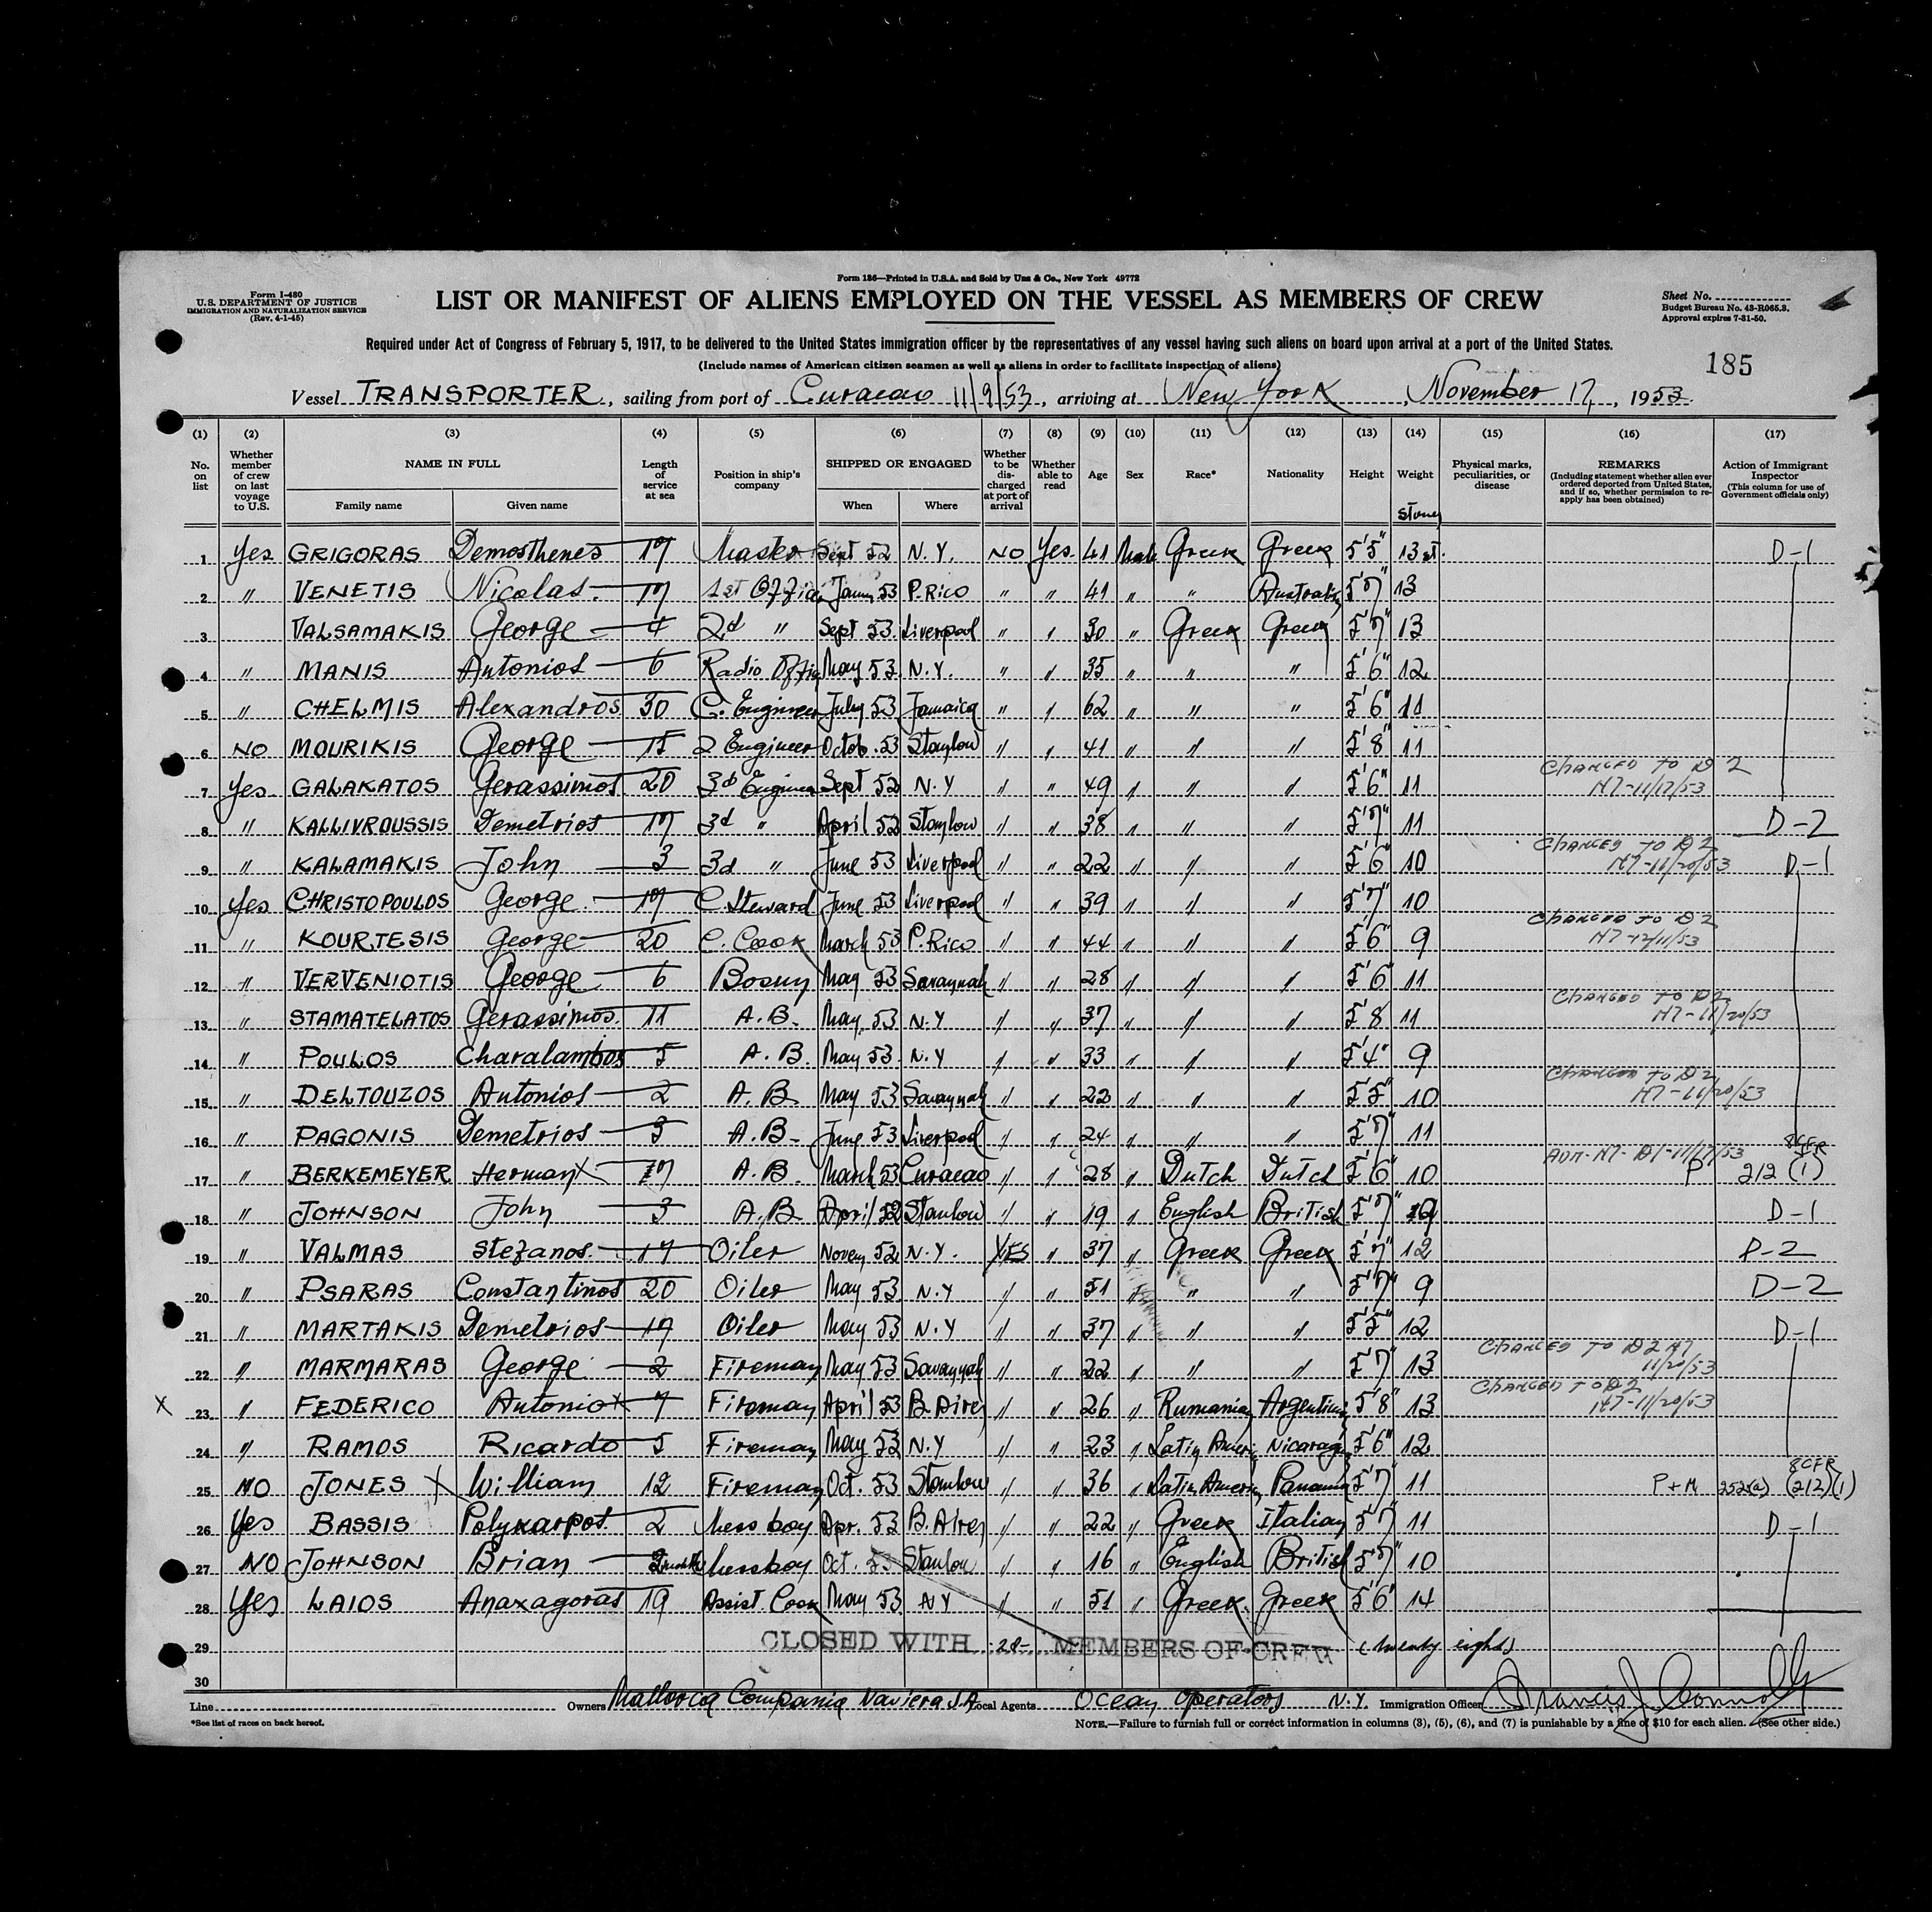 Form 136—Printed in U.S.A. and Sold by Unz & Co., New York 49772
Form I-480
U.S. DEPARTMENT OF JUSTICE
IMMIGRATION AND NATURALIZATION SERVICE
(Rev. 4-1-45)
LIST OR MANIFEST OF ALIENS EMPLOYED ON THE VESSEL AS MEMBERS OF CREW
Sheet No.
Budget Bureau No. 43-R065.3.
Approval expires 7-31-50.
Required under Act of Congress of February 5, 1917, to be delivered to the United States immigration officer by the representatives of any vessel having such aliens on board upon arrival at a port of the United States.
(Include names of American citizen seamen as well as aliens in order to facilitate inspection of aliens)
185
Vessel TRANSPORTER, sailing from port of Curacao 11/9/53, arriving at New York, November 17, 1953
(1) (2) (3) (4) (5) (6) (7) (8) (9) (10) (11) (12) (13) (14) (15) (16) (17)
No. on list
Whether member of crew on last voyage to U.S.
NAME IN FULL
Family name
Given name
Length of service at sea
Position in ship's company
SHIPPED OR ENGAGED
When
Where
Whether to be discharged at port of arrival
Whether able to read
Age
Sex
Race*
Nationality
Height
Weight
Stones
Physical marks, peculiarities, or disease
REMARKS
(Including statement whether alien ever ordered deported from United States, and if so, whether permission to reapply has been obtained)
Action of Immigrant Inspector
(This column for use of Government officials only)
1 Yes GRIGORAS Demosthenes 17 Master Sept 52 N.Y. NO Yes 41 Male Greek Greek 5'5" 13 st. D-1
2 " VENETIS Nicolas 17 1st Office Janu 53 P.Rico " " 41 " " Australia 5'7" 13
3 VALSAMAKIS George 4 2d " Sept 53 Liverpool " " 30 " Greek Greek 5'7" 13
4 " MANIS Antonios 6 Radio Offic May 53 N.Y. " " 35 " " " 5'6" 12
5 " CHELMIS Alexandros 30 C. Engineer July 53 Jamaica " " 62 " " " 5'6" 11
6 NO MOURIKIS George 15 2 Engineer Octob. 53 Stanlow " " 41 " " " 5'8" 11
7 Yes GALAKATOS Gerassimos 20 3d Engineer Sept 52 N.Y " " 49 " " " 5'6" 11 CHANGED TO D2 N7-11/17/53
8 " KALLIVROUSSIS Demetrios 17 3d " April 52 Stanlow " " 38 " " " 5'7" 11 D-2
9 " KALAMAKIS John 3 3d " June 53 Liverpool " " 22 " " " 5'6" 10 CHANGED TO D2 N7-11/20/53 D-1
10 Yes CHRISTOPOULOS George 17 C.Steward June 53 Liverpool " " 39 " " " 5'7" 10
11 " KOURTESIS George 20 C. Cook March 53 P.Rico " " 44 " " " 5'6" 9 CHANGED TO D2 N7-12/11/53
12 " VERVENIOTIS George 6 Bosun May 53 Savannah " " 28 " " " 5'6" 11
13 " STAMATELATOS Gerassimos 11 A.B. May 53 N.Y " " 37 " " " 5'8 11 CHANGED TO D2 N7-11/20/53
14 " POULOS Charalambos 5 A.B. May 53 N.Y " " 33 " " " 5'4" 9
15 " DELTOUZOS Antonios 2 A.B May 53 Savannah " " 22 " " " 5'5" 10 CHANGED TO D2 N7-11/20/53
16 " PAGONIS Demetrios 3 A.B- June 53 Liverpool " " 24 " " " 5'7" 11
17 " BERKEMEYER Herman X 17 A.B. March 53 Curacao " " 28 " Dutch Dutch 5'6" 10 ADM-N7-D1-11/17/53 P 8CFR 212 (1)
18 " JOHNSON John 3 A.B April 52 Stanlow " " 19 " English British 5'7" 10 D-1
19 " VALMAS Stefanos 17 Oiler Novem 52 N.Y. YES " 37 " Greek Greek 5'7" 12 P-2
20 " PSARAS Constantinos 20 Oiler May 53 N.Y " " 51 " " " 5'7" 9 D-2
21 " MARTAKIS Demetrios 17 Oiler May 53 N.Y " " 37 " " " 5'5" 12 D-1
22 " MARMARAS George 2 Fireman May 53 Savannah " " 22 " " " 5'7" 13 CHANGED TO D2 N7 11/20/53
X 23 " FEDERICO Antonio X 7 Fireman April 53 B.Aires " " 26 " Rumanian Argentine 5'8" 13 CHANGED TO D2 N7-11/20/53
24 " RAMOS Ricardo 5 Fireman May 53 N.Y " " 23 " Latin Americ Nicaragu 5'6" 12
25 NO JONES X William 12 Fireman Oct. 53 Stanlow " " 36 " Latin America Panama 5'7" 11 P + M 252(a) 8CFR (212)(1)
26 Yes BASSIS Polykarpos 2 Mess boy Apr. 53 B.Aires " " 22 " Greek Italian 5'7" 11 D-1
27 NO JOHNSON Brian 2 months Messboy Oct. 53 Stanlow " " 16 " English British 5'7" 10
28 Yes LAIOS Anaxagoras 19 Assist. Cook May 53 NY " " 51 " Greek Greek 5'6" 14
29 CLOSED WITH 28- MEMBERS OF CREW (twenty eight)
30
Line Owners Mallorca Compania Naviera S.A Local Agents Ocean Operators N.Y. Immigration Officer Francis J Connolly
*See list of races on back hereof.
NOTE.—Failure to furnish full or correct information in columns (3), (5), (6), and (7) is punishable by a fine of $10 for each alien. (See other side.)